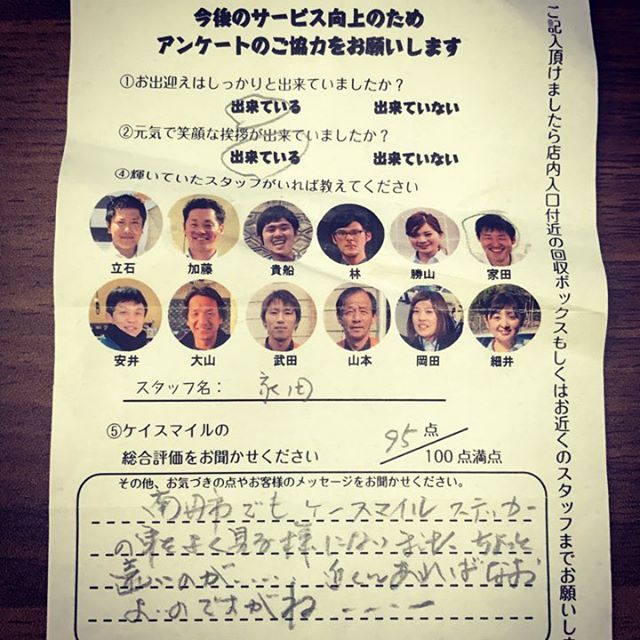 今後のサービス向上のため
アンケートのご協力をお願いします
①お出迎えはしっかりと出来ていましたか?
出来ている 出来ていない
②元気で笑顔な挨拶が出来ていましたか?
出来ている 出来ていない
④輝いていたスタッフがいれば教えてください
立石 加藤 貴船 林 勝山 家田
安井 大山 武田 山本 岡田 細井
スタッフ名: 家田
⑤ケイスマイルの 95 点
総合評価をお聞かせください 100点満点
その他、お気づきの点やお客様のメッセージをお聞かせください。
南丹市でもケースマイルステッカー
の車をよく見る様になりました、ちょっと
遠いのが…… 近くにあればなお
よいのですがね ----
ご記入頂けましたら店内入口付近の回収ボックスもしくはお近くのスタッフまでお願いし